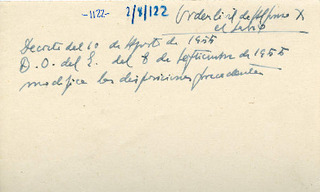 -1122- 2/8/122 Orden Civil de Alfonso X
el Sabio
Decreto del 10 de Agosto de 1955
B.O. del E. del 8 de Septiembre de 1955
modifica las disposiciones precedentes